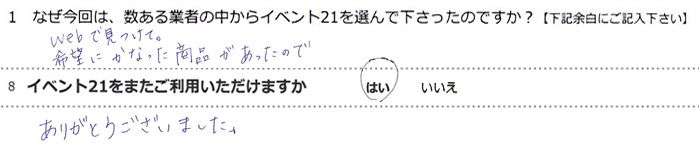 1 なぜ今回は、数ある業者の中からイベント21を選んで下さったのですか？【下記余白にご記入下さい】
webで見つけて。
希望にかなった商品があったので
8 イベント21をまたご利用いただけますか はい いいえ
ありがとうございました。